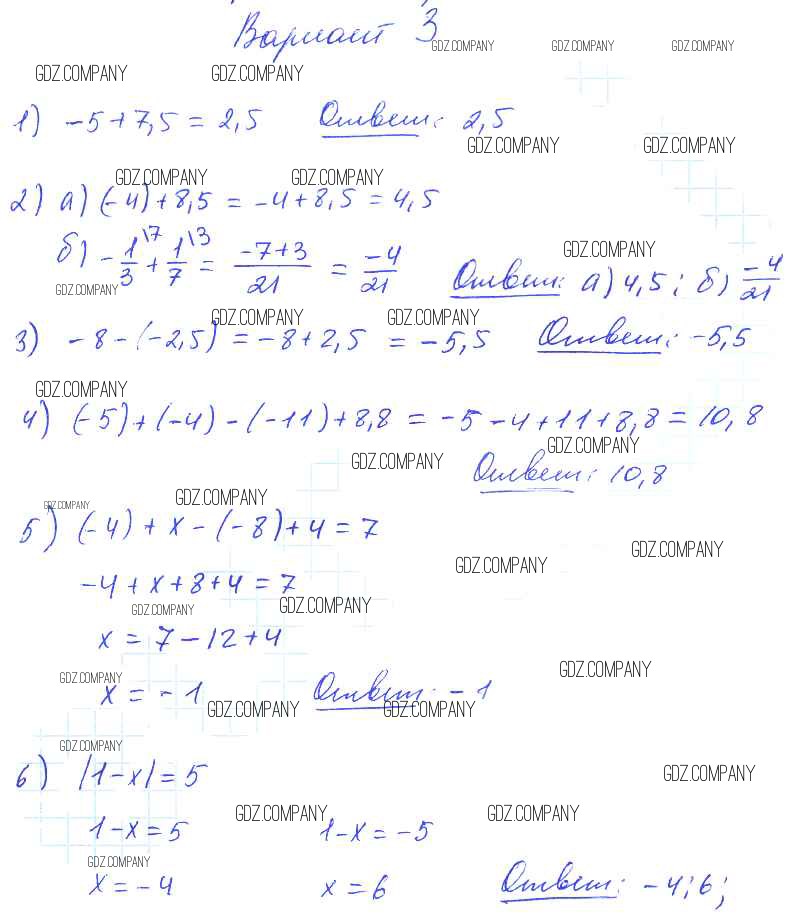 Вариант 3
GDZ.COMPANY GDZ.COMPANY GDZ.COMPANY
GDZ.COMPANY GDZ.COMPANY
1) -5+7,5 = 2,5 Ответ: 2,5
GDZ.COMPANY GDZ.COMPANY
GDZ.COMPANY GDZ.COMPANY
2) а) (-4)+8,5 = -4+8,5 = 4,5
б) -1/3\7 + 1/7\3 = -7+3/21 = -4/21 Ответ: а) 4,5; б) -4/21
GDZ.COMPANY
GDZ.COMPANY
GDZ.COMPANY GDZ.COMPANY
3) -8-(-2,5) = -8+2,5 = -5,5 Ответ: -5,5
GDZ.COMPANY
4) (-5)+(-4)-(-11)+8,8 = -5-4+11+8,8 = 10,8
GDZ.COMPANY
GDZ.COMPANY
Ответ: 10,8
GDZ.COMPANY GDZ.COMPANY
5) (-4)+x-(-8)+4=7
GDZ.COMPANY GDZ.COMPANY
-4+x+8+4=7
GDZ.COMPANY GDZ.COMPANY
x = 7-12+4
GDZ.COMPANY GDZ.COMPANY
x = -1 Ответ: -1
GDZ.COMPANY GDZ.COMPANY
GDZ.COMPANY
6) |1-x|=5
GDZ.COMPANY
GDZ.COMPANY GDZ.COMPANY
1-x=5 1-x=-5
GDZ.COMPANY
x=-4 x=6 Ответ: -4;6;